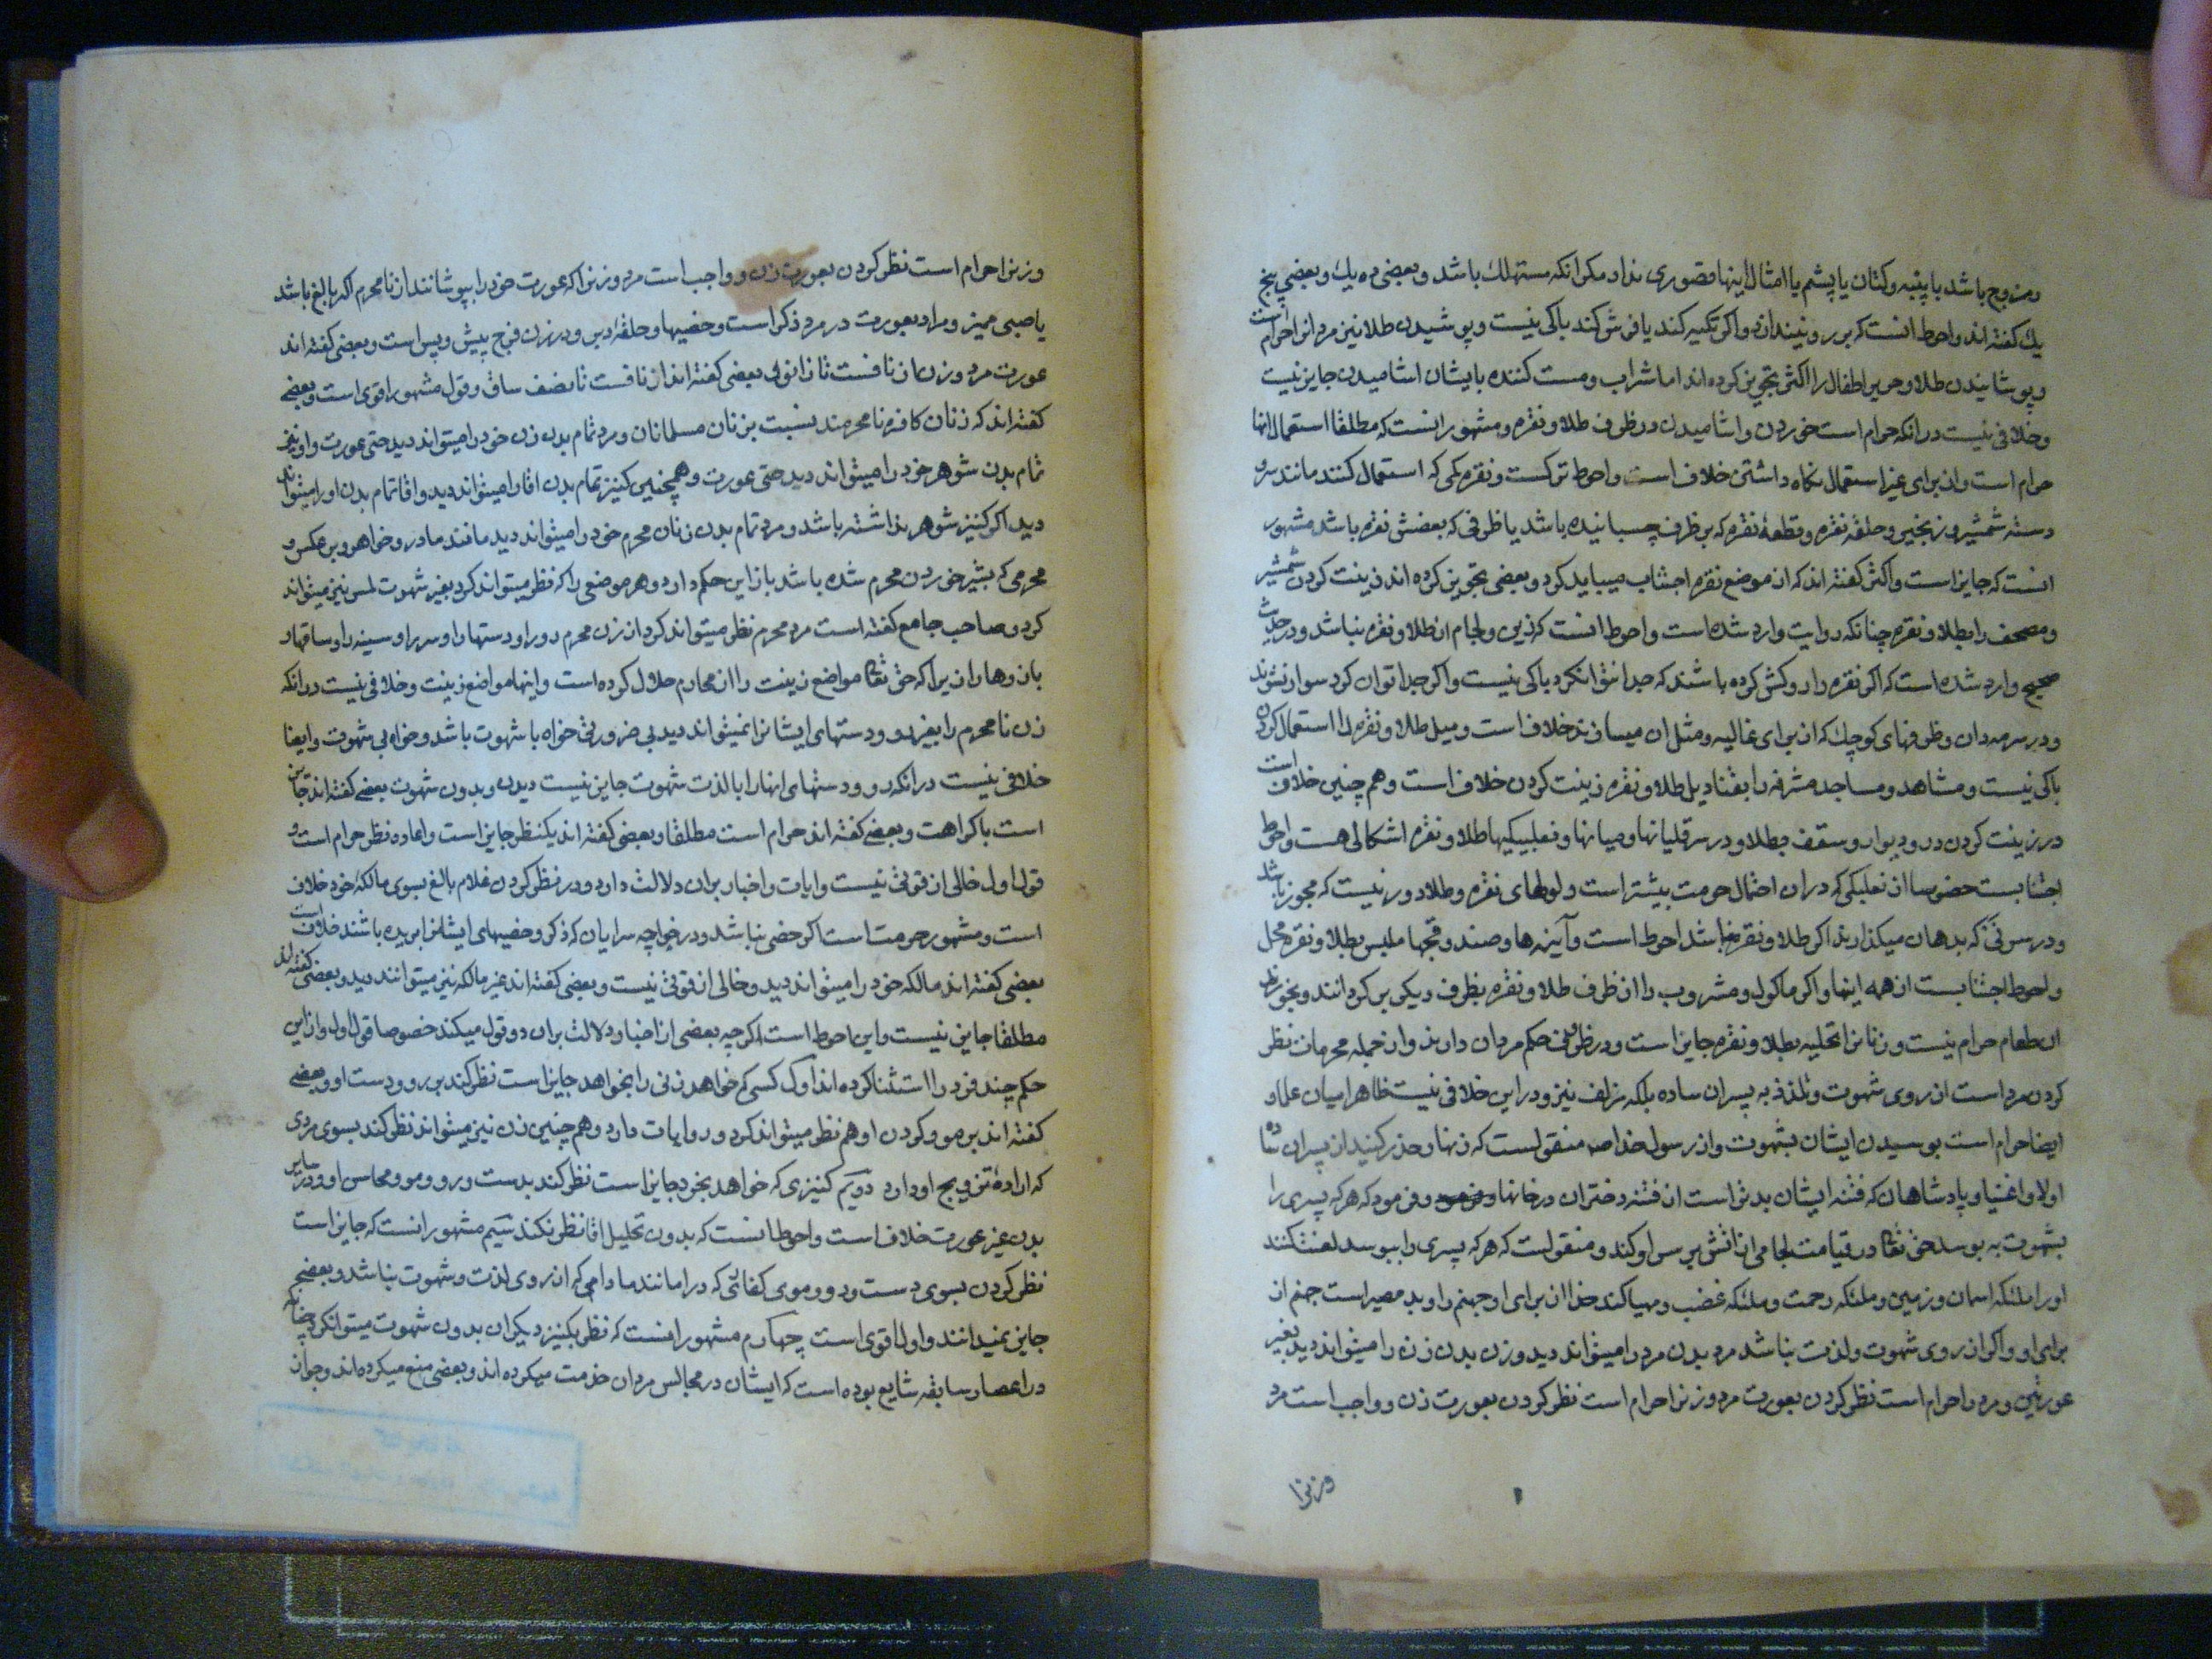 ممزوج باشد با پنبه و کتان یا پشم یا امثال اینها قصوری ندارد مکر انکه مستهلک باشد و بعضی ده یک و بعضی پنج
یک کفته اند و احوط انست که بر رو نیندازد و اکر تکیه کند یا فرش کند باکی نیست و پوشیدن طلا نیز مردانرا حرام است
و پوشانیدن طلا و حریر اطفال را اکثر تجویز کرده اند اما شراب و مست کننده بایشان اشامیدن جایز نیست
و خلافی نیست در انکه حرام است خوردن و اشامیدن در ظرف طلا و نقره و مشهور انست که مطلقا استعمال انها
حرام است و ان برای غیر استعمال نکاه داشتن خلاف است و احوط ترکست و نقره کمی که استعمال کنند مانند سر و
دسته شمشیر و زنجیر و حلقه نقره و قطعهٔ نقره که بر ظرف چسبانیده باشد یا ظرفی که بعضش نقره باشد مشهور
انست که جایز است و اکثر کفته اند که از موضع نقره اجتناب میباید کرد و بعضی تجویز کرده اند زینت کردن شمشیر
و مصحف را بطلا و نقره چنانکه روایت وارد شده است و احوط انست که زین و لجام از طلا و نقره نباشد و در حدیث
صحیح وارد شده است که اکر نقره را روکش کرده باشند که جدا نتوانکرد باکی نیست و اکر جدا توان کرد سوار نشوند
و در سرمه دان و ظرفهای کوچک که از برای غالیه و مثل ان میسازند خلاف است و میل طلا و نقره را استعمال کردن
باکی نیست و مشاهد و مساجد مشرفه را بقنادیل طلا و نقره زینت کردن خلاف است و هم چنین خلاف است
در زینت کردن در و دیوار و سقف بطلا و در سر قلیانها و میانها و نعلبیکیها طلا و نقره اشکالی هست و احوط
اجتنابست خصوصا از نعلبکی که در ان احتمال حرمت بیشتر است و لولهای نقره و طلا دور نیست که مجوز باشد
و در سرنی که بدهان میکذارند اکر طلا و نقره نباشد احوط است و آینه ها و صندوقچها ملبس بطلا و نقره محل
و احوط اجتنابست از همه اینها و اکر ماکول و مشروب را از ظرف طلا و نقره بظرف دیکری بر کردانند و بخورند
ان طعام حرام نیست و زنانرا تحلیه بطلا و نقره جایز است و در ظروف حکم مردان دارند و از جمله محرمات نظر
کردن مرد است از روی شهوت و تلذذ به پسران ساده بلکه بزلف نیز و در این خلافی نیست ظاهرا میان علما و
ایضا حرام است بوسیدن ایشان بشهوت و از رسول خدا ص منقولست که زنهار حذر کنید از پسران ساده
اولاد اغنیا و پادشاهان که فتنه ایشان بدتر است از فتنه دختران در خانها و فرمود که هر که پسری را
بشهوت به بوسد حق تعالی در قیامت لجامی از اتش بر سر او کند و منقولست که هر که پسری را ببوسد لعنت کنند
او را ملئکه اسمان و زمین و ملئکه رحمت و ملئکه غضب و مهیا کند خدا از برای او جهنم را و بد مصیر است جهنم از
برای او و اکر از روی شهوت و لذت نباشد مرد بدن مرد را میتواند دید و زن بدن زن را میتواند دید بغیر
عورتین و مرد را حرام است نظر کردن بعورت مرد و زنرا حرام است نظر کردن بعورت زن و واجب است مرد
و زنرا
و زنرا حرام است نظر کردن بعورت زن و واجب است مرد و زنرا که عورت خود را بپوشانند از نامحرم اکر بالغ باشد
یا صبی ممیز و مراد بعورت در مرد ذکر است و خصیها و حلقهٔ دبر و در زن فرج پیش و پس است و بعضی کفته اند
عورت مرد و زن از نافست تا زانو و بعضی کفته اند از نافست تا نصف ساق و قول مشهور اقوی است و بعضی
کفته اند که زنان کافره نامحرمند بنسبت بزنان مسلمانان و مرد تمام بدن زن خود را میتواند دید حتی عورت و او نیز
تمام بدن شوهر خود را میتواند دید حتی عورت و همچنین کنیز تمام بدن اقا را میتواند دید و اقا تمام بدن او را میتواند
دید اکر کنیز شوهر نداشته باشد و مرد تمام بدن زنان محرم خود را میتواند دید مانند مادر و خواهر و بر عکس و
محرمی که بشیر خوردن محرم شده باشد باز این حکم دارد و هر موضعی را که نظر میتواند کرد بغیر شهوت لمس نیز میتواند
کرد و صاحب جامع کفته است مرد محرم نظر میتواند کرد از زن محرم رو را و دستها را و سر را و سینه را و ساقها و
بازوها را زیرا که حق تعالی مواضع زینت را از محارم حلال کرده است و اینها مواضع زینت و خلافی نیست در انکه
زن نامحرم را بغیر رو و دستهای ایشانرا نمیتواند دید بی ضرورتی خواه با شهوت باشد و خواه بی شهوت و ایضا
خلافی نیست در انکه رو و دستهای انها را با لذت شهوت جایز نیست دیدن و بدون شهوت بعضی کفته اند جایز
است با کراهت و بعضی کفته اند حرام است مطلقا و بعضی کفته اند یکنظر جایز است و اعاده نظر حرام است و
قول اول خالی از قوتی نیست و ایات و اخبار بران دلالت دارد و در نظر کردن غلام بالغ بسوی مالکهٔ خود خلاف
است و مشهور حرمت است اکر خصی نباشد و در خواجه سرایان که ذکر و خصیهای ایشانرا بریده باشند خلاف است
بعضی کفته اند مالکه خود را میتواند دید و خالی از قوتی نیست و بعضی کفته اند غیر مالکه نیز میتوانند دید و بعضی کفته اند
مطلقا جایز نیست و این احوط است اکر چه بعضی از اخبار دلالت بران دو قول میکند خصوصا قول اول و از این
حکم چند فرد را استثنا کرده اند اول کسی که خواهد زنی را بخواهد جایز است نظر کند برو و دست او و بعضی
کفته اند بر مو و کردن او هم نظر میتواند کرد و روایات دارد و هم چنین زن نیز میتواند نظر کند بسوی مردی
که ارادهٔ تزویج او دارد دویم کنیزی که خواهد بخرد جایز است نظر کند بدست و رو و مو و محاسن او و در سایر
بدن غیر عورت خلاف است و احوط انست که بدون تحلیل اقا نظر نکند سیم مشهور انست که جایز است
نظر کردن بسوی دست و رو و موی کفاری که در امانند مادامی که از روی لذت و شهوت نباشد و بعضی
جایز نمیدانند و اول اقوی است چهارم مشهور انست که نظر بکنیز دیکران بدون شهوت میتوانکرد چنانکه
در اعصار سابقه شایع بوده است که ایشان در مجالس مردان خدمت میکرده اند و بعضی منع میکرده اند و جواز